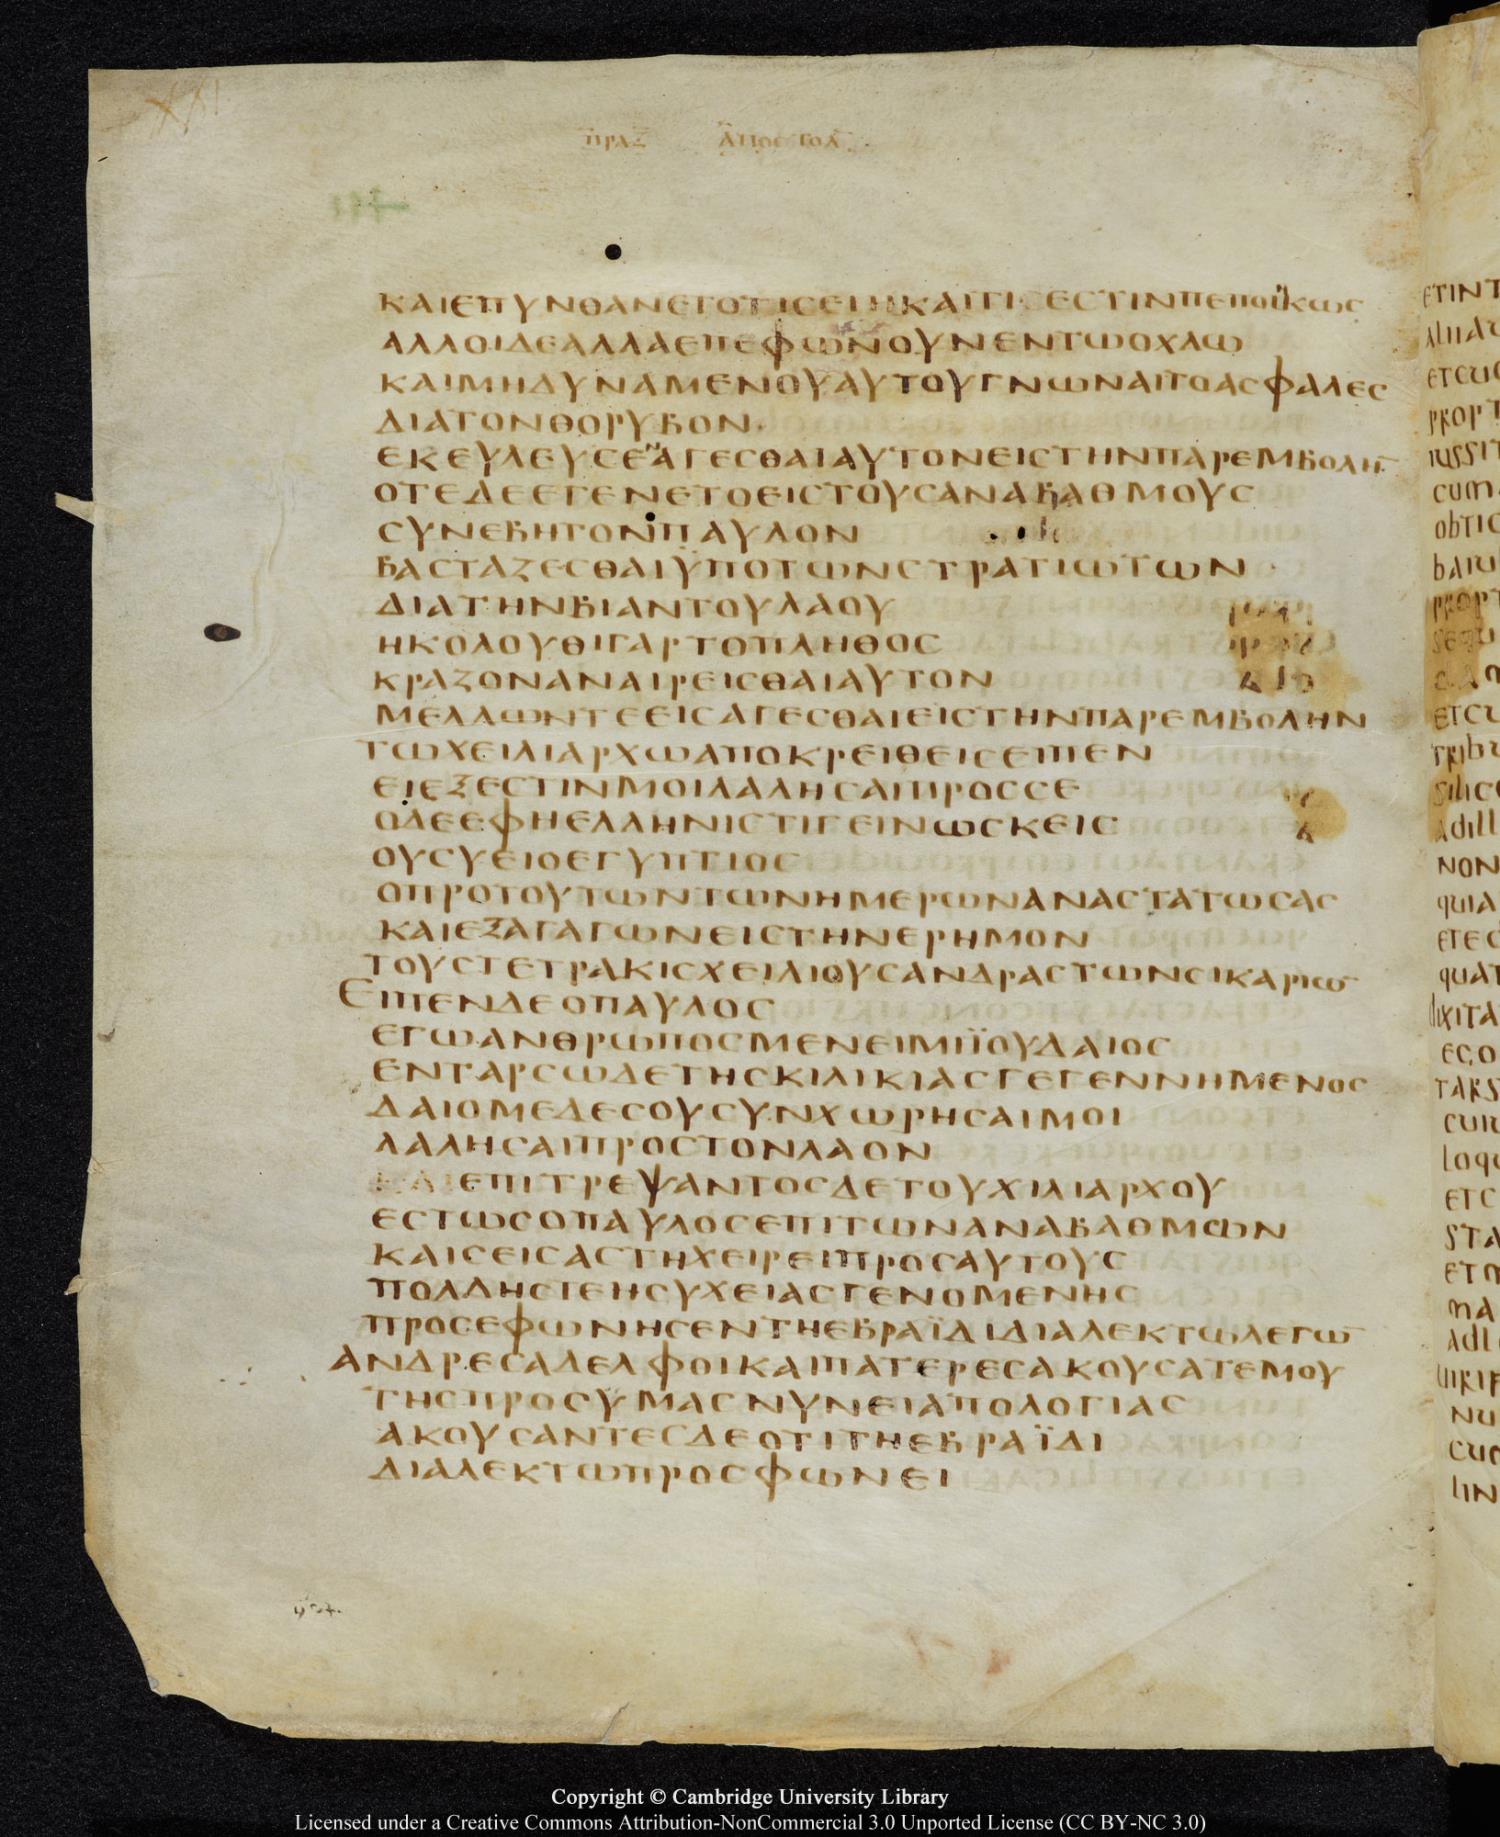 ΠΡΑΞ ΑΠΟСΤΟΛ
ΚΑΙΕΠΥΝΘΑΝΕΤΟΤΙСΕΙΗΚΑΙΤΙСΕСΤΙΝΠΕΠΟΙΚΩС
ΑΛΛΟΙΔΕΑΛΛΑΕΠΕΦΩΝΟΥΝΕΝΤΩΟΧΛΩ
ΚΑΙΜΗΔΥΝΑΜΕΝΟΥΑΥΤΟΥΓΝΩΝΑΙΤΟΑСΦΑΛΕС
ΔΙΑΤΟΝΘΟΡΥΒΟΝ
ΕΚΕΥΛΕΥСΕΑΓΕСΘΑΙΑΥΤΟΝΕΙСΤΗΝΠΑΡΕΜΒΟΛΗ̅
ΟΤΕΔΕΕΓΕΝΕΤΟΕΙСΤΟΥСΑΝΑΒΑΘΜΟΥС
СΥΝΕΒΗΤΟΝΠΑΥΛΟΝ
ΒΑСΤΑΖΕСΘΑΙΥΠΟΤΩΝСΤΡΑΤΙΩΤΩΝ
ΔΙΑΤΗΝΒΙΑΝΤΟΥΛΑΟΥ
ΗΚΟΛΟΥΘΙΓΑΡΤΟΠΛΗΘΟС
ΚΡΑΖΟΝΑΝΑΙΡΕΙСΘΑΙΑΥΤΟΝ
ΜΕΛΛΩΝΤΕΕΙСΑΓΕСΘΑΙΕΙСΤΗΝΠΑΡΕΜΒΟΛΗΝ
ΤΩΧΕΙΛΙΑΡΧΩΑΠΟΚΡΕΙΘΕΙСΕΙΠΕΝ
ΕΙΕΞΕСΤΙΝΜΟΙΛΑΛΗСΑΙΠΡΟССΕ
ΟΔΕΕΦΗΕΛΛΗΝΙСΤΙΓΕΙΝΩСΚΕΙС
ΟΥСΥΕΙΟΕΓΥΠΤΙΟС
ΟΠΡΟΤΟΥΤΩΝΤΩΝΗΜΕΡΩΝΑΝΑСΤΑΤΩСΑС
ΚΑΙΕΞΑΓΑΓΩΝΕΙСΤΗΝΕΡΗΜΟΝ
ΤΟΥСΤΕΤΡΑΚΙСΧΕΙΛΙΟΥСΑΝΔΡΑСΤΩΝСΙΚΑΡΙΩ̅
ΕΙΠΕΝΔΕΟΠΑΥΛΟС
ΕΓΩΑΝΘΡΩΠΟСΜΕΝΕΙΜΙΪΟΥΔΑΙΟС
ΕΝΤΑΡСΩΔΕΤΗСΚΙΛΙΚΙΑСΓΕΓΕΝΝΗΜΕΝΟС
ΔΑΙΟΜΕΔΕСΟΥСΥΝΧΩΡΗСΑΙΜΟΙ
ΛΑΛΗСΑΙΠΡΟСΤΟΝΛΑΟΝ
ΚΑΙΕΠΙΤΡΕΨΑΝΤΟСΔΕΤΟΥΧΙΛΙΑΡΧΟΥ
ΕСΤΩСΟΠΑΥΛΟСΕΠΙΤΩΝΑΝΑΒΑΘΜΩΝ
ΚΑΙСΕΙСΑСΤΗΧΕΙΡΕΙΠΡΟСΑΥΤΟΥС
ΠΟΛΛΗСΤΕΗСΥΧΕΙΑСΓΕΝΟΜΕΝΗС
ΠΡΟСΕΦΩΝΗСΕΝΤΗΕΒΡΑΪΔΙΔΙΑΛΕΚΤΩΛΕΓΩ̅
ΑΝΔΡΕСΑΔΕΛΦΟΙΚΑΙΠΑΤΕΡΕСΑΚΟΥСΑΤΕΜΟΥ
ΤΗСΠΡΟСΥΜΑСΝΥΝΕΙΑΠΟΛΟΓΙΑС
ΑΚΟΥСΑΝΤΕСΔΕΟΤΙΤΗΕΒΡΑΪΔΙ
ΔΙΑΛΕΚΤΩΠΡΟСΦΩΝΕΙ
Copyright © Cambridge University Library
Licensed under a Creative Commons Attribution-NonCommercial 3.0 Unported License (CC BY-NC 3.0)